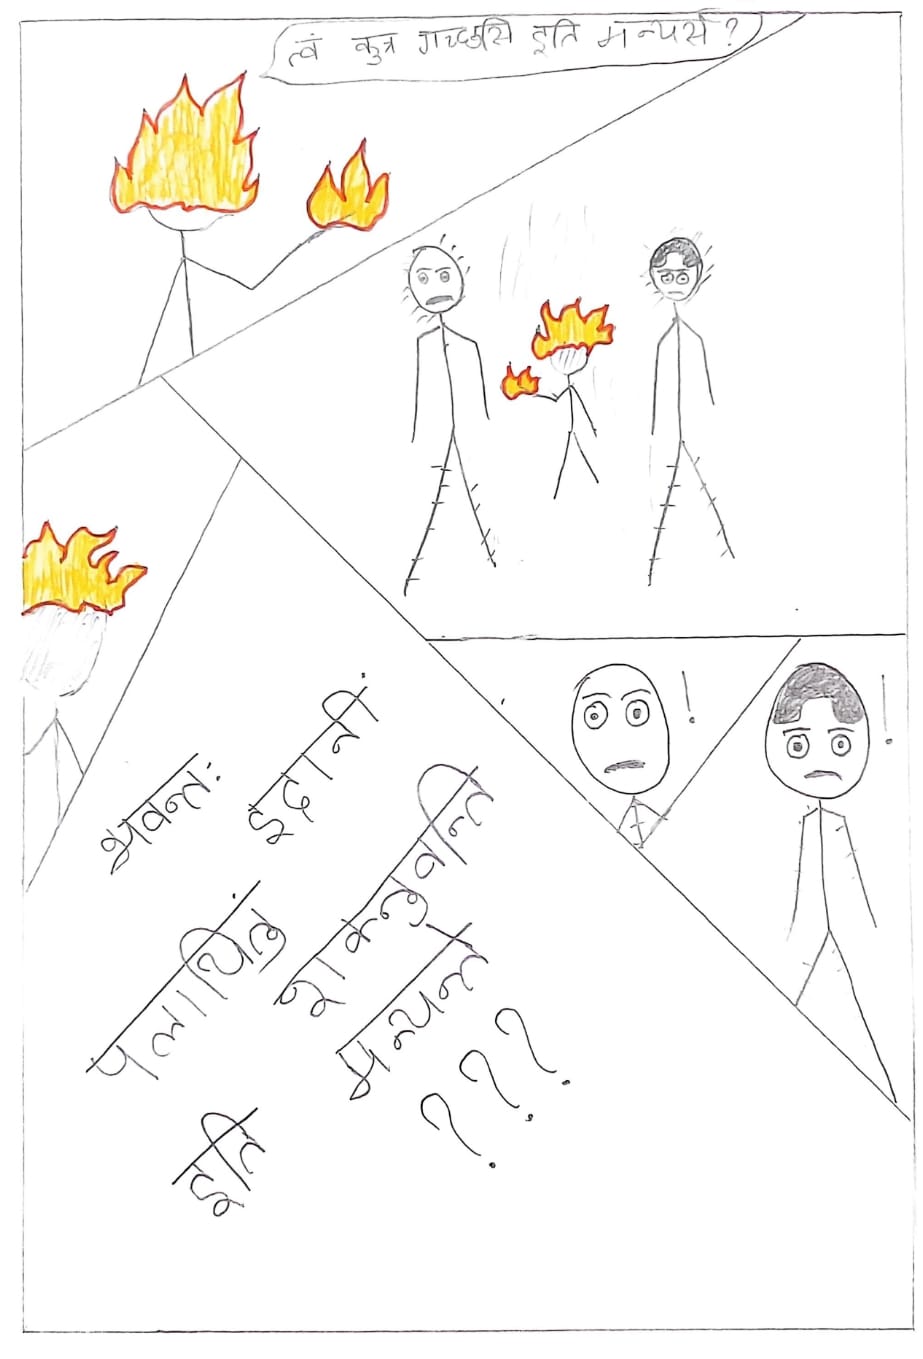 त्वं कुत्र गच्छसि इति मन्यसे?
!
!
भवन्तः इदानीं
पलायितुं शक्नुवन्ति
इति मन्यन्ते
???